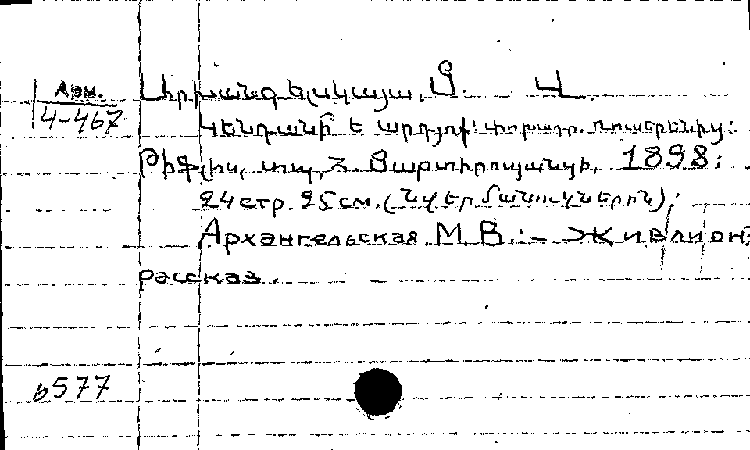 Арм.
4-467
Արխանգելսկայա, Մ. Վ.
Կենդանի՞ է արդյոք: փոխադր. ռուսերենից:
Թիֆլիս, տպ. Մարտիրոսյանցի, 1898;
24 стр. 25 см. (Նվեր մանուկներուն);
Архангельская М. В. :- Жив ли он;
рассказ.
6577